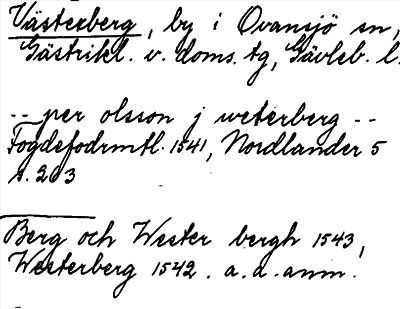 Västerberg, by i Ovansjö sn,
Gästrikl. v. doms. tg, Gävleb. l.
-- per olsson j weterberg --
Fogdefodrmtl. 1541, Nordlander 5
s. 203
Berg och Wester bergh 1543,
Westerberg 1542. a. a. anm.